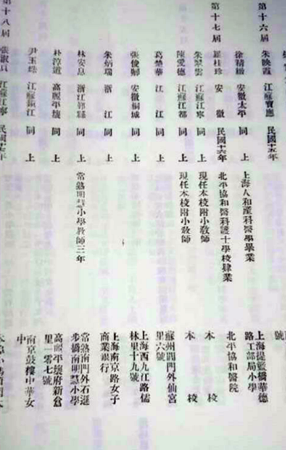 第十六屆
朱映霞 江蘇寶應 民國十五年
徐靜樵 安徽太平 同 上 上海人和產科醫學畢業 上海提籃橋華德路工部局小學
第十七屆
羅桂珍 安 徽 民國十六年 北平協和醫科護士學校肄業 北平協和醫院
朱翠雲 江蘇江寧 同 上 現任本校附小教師 本 校
陳愛德 江蘇江都 同 上 現任本校附小教師 本 校
葛楚華 江 蘇 同 上 蘇州閶門外仙宮里六號
張俊嫻 安徽桐城 同 上 上海西九江路儒林里十九號
朱炳瑞 浙 江 同 上 上海南京路女子商業銀行
林安息 浙江鄞縣 同 上 常熟明慧小學教師三年 常熟南門外石過步橋南明慧小學
朴淳道 高麗平壤 同 上 高麗平壤府新倉里一零七號
尹玉峰 江蘇鎮江 同 上 南京鼓樓中華女中
第十八屆
張淑貞 江蘇江寧 民國十七年